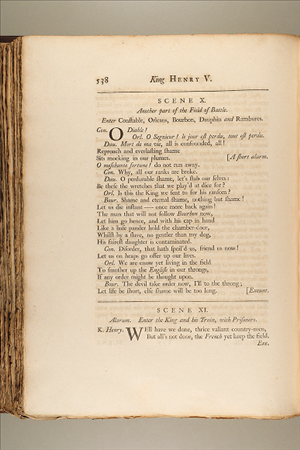 538 King HENRY V.
SCENE X.
Another part of the Field of Battle.
Enter Constable, Orleans, Bourbon, Dauphin and Rambures.
Con. O Diable!
Orl. O Seigneur! le jour est perdu, tout est perdu.
Dau. Mort de ma vie, all is confounded, all!
Reproach and everlasting shame
Sits mocking in our plumes. [A short alarm.
O meschante fortune! do not run away.
Con. Why, all our ranks are broke.
Dau. O perdurable shame, let's stab our selves:
Be these the wretches that we play'd at dice for?
Orl. Is this the King we sent to for his ransom?
Bour. Shame and eternal shame, nothing but shame!
Let us die instant — once more back again!
The man that will not follow Bourbon now,
Let him go hence, and with his cap in hand
Like a base pander hold the chamber-door,
Whilst by a slave, no gentler than my dog,
His fairest daughter is contaminated.
Con. Disorder, that hath spoil'd us, friend us now!
Let us on heaps go offer up our lives.
Orl. We are enow yet living in the field
To smother up the English in our throngs,
If any order might be thought upon.
Bour. The devil take order now, I'll to the throng;
Let life be short, else shame will be too long. [Exeunt.
SCENE XI.
Alarum. Enter the King and his Train, with Prisoners.
K. Henry. WEll have we done, thrice valiant country-men,
But all's not done, the French yet keep the field.
Exe.